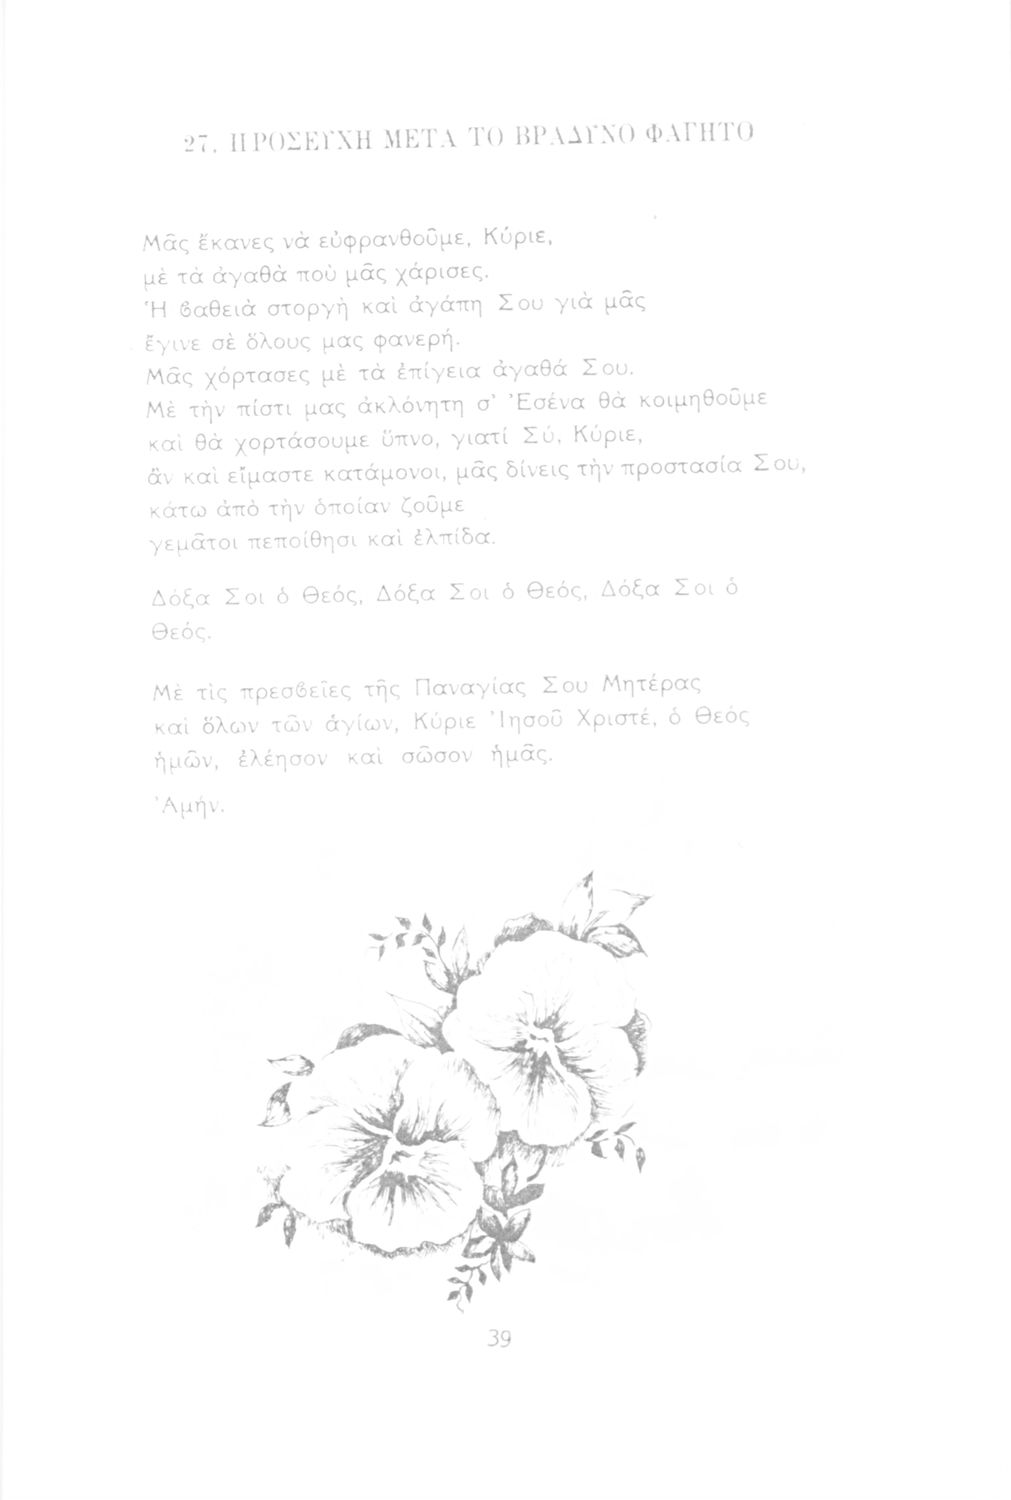 27. ΠΡΟΣΕΥΧΗ ΜΕΤΑ ΤΟ ΒΡΑΔΥΝΟ ΦΑΓΗΤΟ
Μᾶς ἔκανες νὰ εὐφρανθοῦμε, Κύριε,
μὲ τὰ ἀγαθὰ ποὺ μᾶς χάρισες.
Ἡ βαθειὰ στοργὴ καὶ ἀγάπη Σου γιὰ μᾶς
ἔγινε σὲ ὅλους μας φανερή.
Μᾶς χόρτασες μὲ τὰ ἐπίγεια ἀγαθά Σου.
Μὲ τὴν πίστι μας ἀκλόνητη σ’ Ἐσένα θὰ κοιμηθοῦμε
καὶ θὰ χορτάσουμε ὕπνο, γιατί Σύ, Κύριε,
ἂν καὶ εἴμαστε κατάμονοι, μᾶς δίνεις τὴν προστασία Σου,
κάτω ἀπὸ τὴν ὁποίαν ζοῦμε
γεμᾶτοι πεποίθησι καὶ ἐλπίδα.
Δόξα Σοι ὁ Θεός, Δόξα Σοι ὁ Θεός, Δόξα Σοι ὁ
Θεός.
Μὲ τὶς πρεσβεῖες τῆς Παναγίας Σου Μητέρας
καὶ ὅλων τῶν ἁγίων, Κύριε Ἰησοῦ Χριστέ, ὁ Θεός
ἡμῶν, ἐλέησον καὶ σῶσον ἡμᾶς.
Ἀμήν.
39